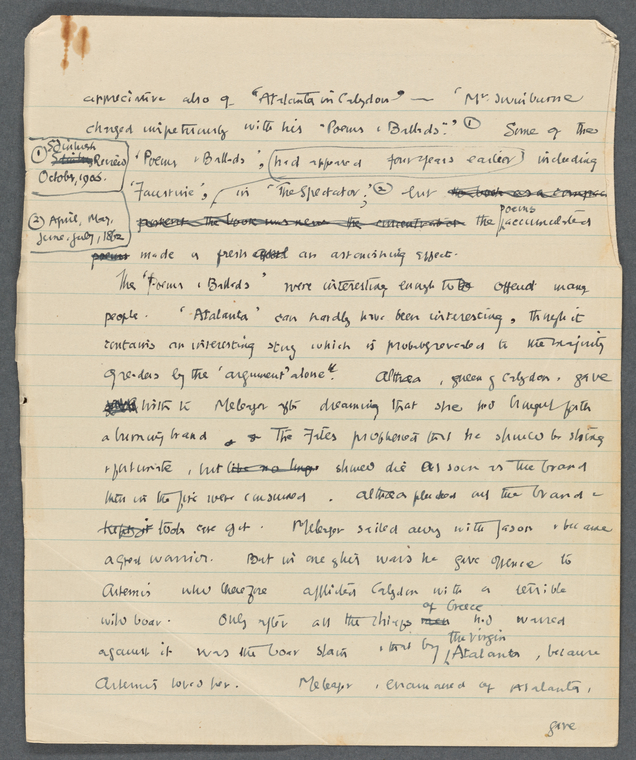 appreciative also of "Atalanta in Calydon" — "Mr. Swinburne
charged impetuously with his "Poems & Ballads." ① Some of the
① Scottish
Review
October, 1905.
'Poems & Ballads', had appeared four years earlier including
'Faustine', in "The Spectator", ② but the book as a
② April, May,
June, July, 1862
present the book was never the concentration the poems accumulated
poems made a fresh an astonishing effect.
The 'Poems & Ballads' were interesting enough to offend many
people. 'Atalanta' can hardly have been interesting, though it
contains an interesting story which is probably revealed to the majority
of readers by the 'argument' alone. Althæa, queen of Calydon, gave
birth to Meleager after dreaming that she had brought forth
a burning brand. The Fates prophesied that he should be strong
& fortunate, but should die as soon as the brand
then in the fire were consumed. Althæa plucked out the brand &
kept it took care of it. Meleager sailed away with Jason & became
a great warrior. But in one of his wars he gave offence to
Artemis who therefore afflicted Calydon with a terrible
wild boar. Only after all the chiefs men of Greece had warred
against it was the boar slain & that by the virgin Atalanta, because
Artemis loved her. Meleager, enamoured of Atalanta,
give